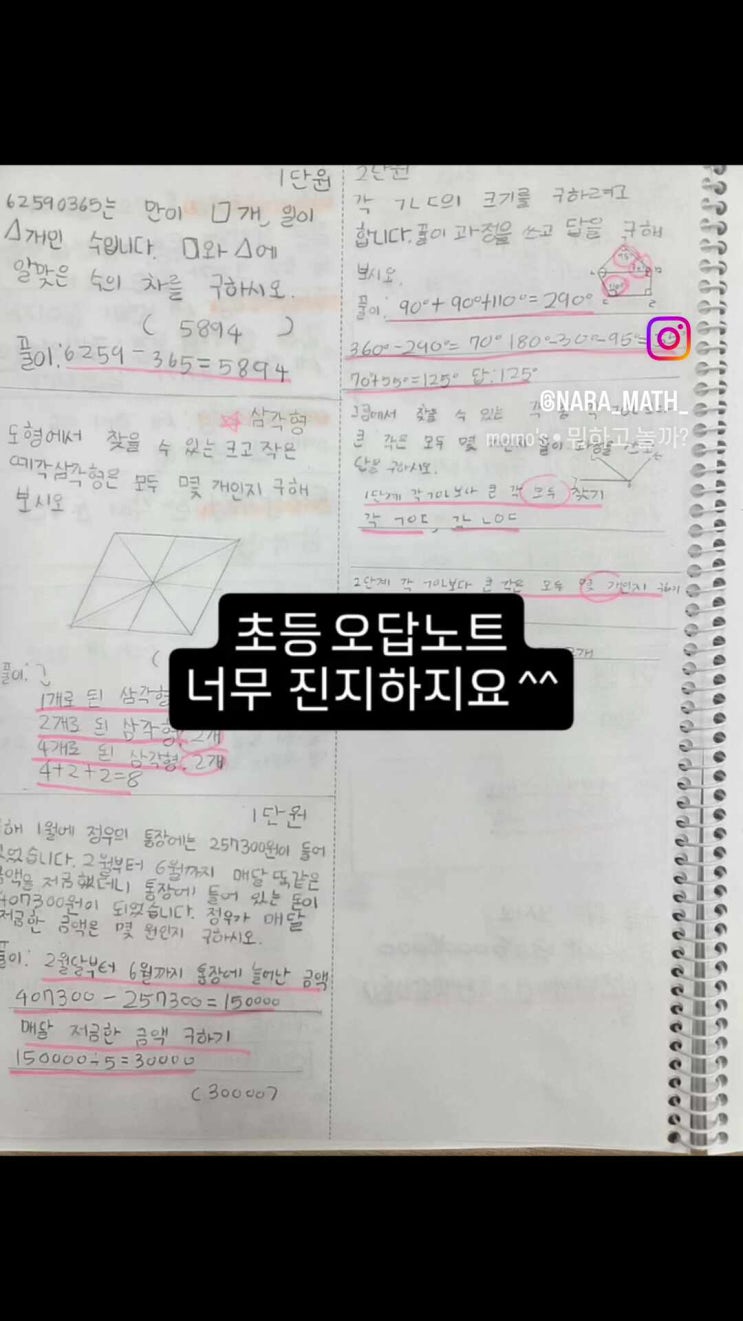 1단원
62590365는 만이 □개, 일이
△개인 수입니다. □와 △에
알맞은 수의 차를 구하시오.
( 5894 )
풀이: 6259 - 365 = 5894
☆ 삼각형
도형에서 찾을 수 있는 크고 작은
삼각형은 모두 몇 개인지 구해
보시오
(
풀이:
1개로 된 삼각형
2개로 된 삼각형: 2개
4개로 된 삼각형: 2개
4+2+2=8
1단원
해 1월에 정우의 통장에는 257300원이 들어
있었습니다. 2월부터 6월까지 매달 똑같은
금액을 저금했더니 통장에 들어 있는 돈이
407300원이 되었습니다. 정우가 매달
저금한 금액은 몇 원인지 구하시오.
풀이: 2월달부터 6월까지 통장에 늘어난 금액
407300 - 257300 = 150000
매달 저금한 금액 구하기
150000÷5=30000
(30000)
2단원
각 ㄱㄴㄷ의 크기를 구하려고
합니다. 풀이 과정을 쓰고 답을 구해
보시오.
풀이: 90°+90°+110°=290°
360°-290°=70° 180°-30°-95°=
70°+55°=125° 답:125°
찾을 수 있는
큰 각은 모두 몇
답을 구하시오.
1단계 각 ㄱㅁㄴ보다 큰 각 모두 찾기
각 ㄱㅁㄷ, 각 ㄴㅁㄷ
2단계 각 ㄱㅁㄴ보다 큰 각은 모두 몇 개인지 구하기
@NARA_MATH_
momo's • 뭐하고 놀까?
초등 오답노트
너무 진지하지요^^